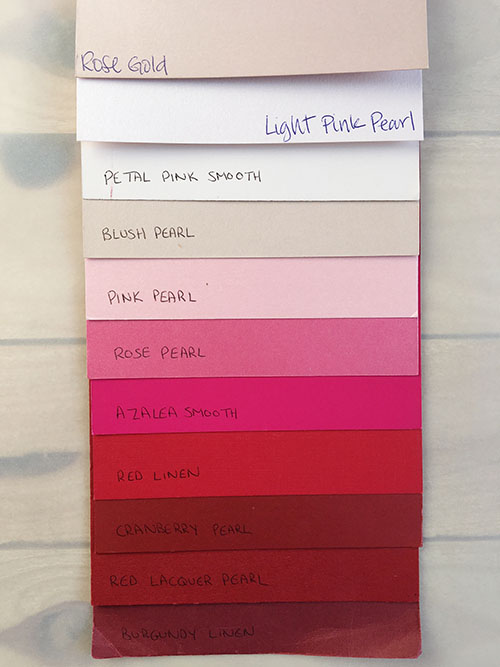 Rose Gold
Light Pink Pearl
PETAL PINK SMOOTH
BLUSH PEARL
PINK PEARL
ROSE PEARL
AZALEA SMOOTH
RED LINEN
CRANBERRY PEARL
RED LACQUER PEARL
BURGUNDY LINEN